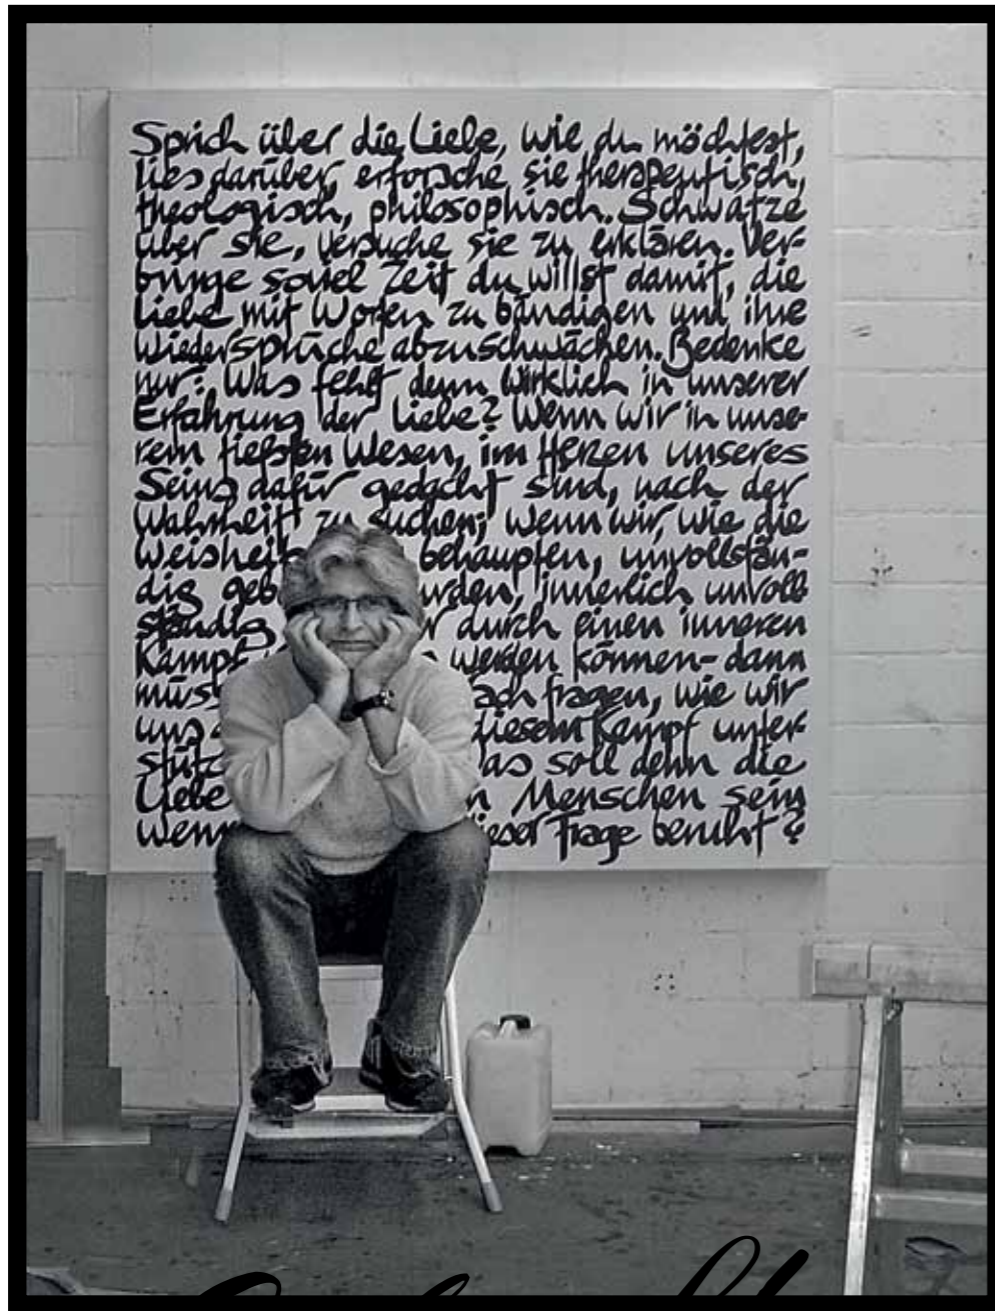 Sprich über die Liebe, wie du möchtest,
lies darüber, erforsche sie therapeutisch,
theologisch, philosophisch. Schwatze
über sie, versuche sie zu erklären. Ver-
bringe soviel Zeit du willst damit, die
Liebe mit Worten zu bändigen und ihre
Wiedersprüche abzuschwächen. Bedenke
nur: Was fehlt denn wirklich in unserer
Erfahrung der Liebe? Wenn wir in unse-
rem tiefsten Wesen, im Herzen unseres
Seins dafür gedacht sind, nach der
Wahrheit zu suchen; wenn wir, wie die
Weisheit behaupten, unvollstän-
dig geb urden, innerlich unvoll
ständig r durch einen inneren
Kampf werden können - dann
müss ach fragen, wie wir
uns diesem Kampf unter-
stütz as soll denn die
Liebe n Menschen sein
wenn ieser Frage beruht?